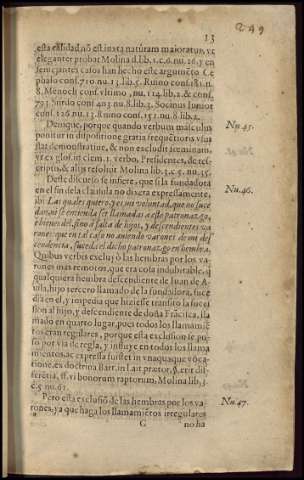 249
13
esta calidad, nõ est iuxta naturam maioratus, vt
eleganter probat Molina d. lib. 1. c. 6. nu. 26. y en
semejantes casos han hecho este argumẽto. Ce
phalo conf. 710. nu. 13. lib. 5. Ruino conf. 181. n.
8. Menoch. conf. vltimo, nu. 114. lib. 2. & conf.
793. Surdo conf. 403. nu. 8. lib. 3. Socinus Iunior
conf. 126. nu. 13. Ruino conf. 151. nu. 8. lib. 2.
Demique, porque quando verbum masculinũ
ponitur in dispositione gratia frequẽtioris vsus
stat demonstratiue, & non excludit feminam,
vt ex glos. in clem. 1. verbo, Presidentes, de res-
criptis, & alijs resoluit Molina lib. 3. c. 5. nu. 35.
Nu. 45.
Deste discurso se infiere, que si la fundadora
en el fin de la clausula no dixera expressamente,
ibi Las quales quiero, y es mi voluntad, que no suce
dan, ni se entienda ser llamadas a este patronazgo,
e bienes del, sino à falta de hijos, y descendientes va
rones: que en tal caso no auiendo varones de mi des
cendencia, suceda el dicho patronazgo en hembra.
Nu. 46.
Quibus verbis excluyò las hembras por los va-
rones mas remotos, que era cosa indubitable, q̃
qualquiera hembra descendiente de Iuan de A-
uila, hijo tercero llamado de la fundadora, suce
dia en el, y impedia que huziesse transito la succes
sion al hijo, y descendiente de doña Frãcisca, lla
mado en quarto lugar, pues todos los llamamiẽ
tos eran regulares, porque esta exclusion se pu-
so por via de regla, y influye en todos los llama
mientos, ac expressa fuisset in vnaquaque voca-
tione, ex doctrina Bart. in l. ait prætor, §. erit dif-
ferẽtia, ff. vi bonorum raptorum, Molina lib. 3.
c. 5. nu. 61.
Pero esta exclusiõ de las hembras por los va-
rones, ya que haga los llamamiẽtos irregulares
Nu. 47.
G
no ha